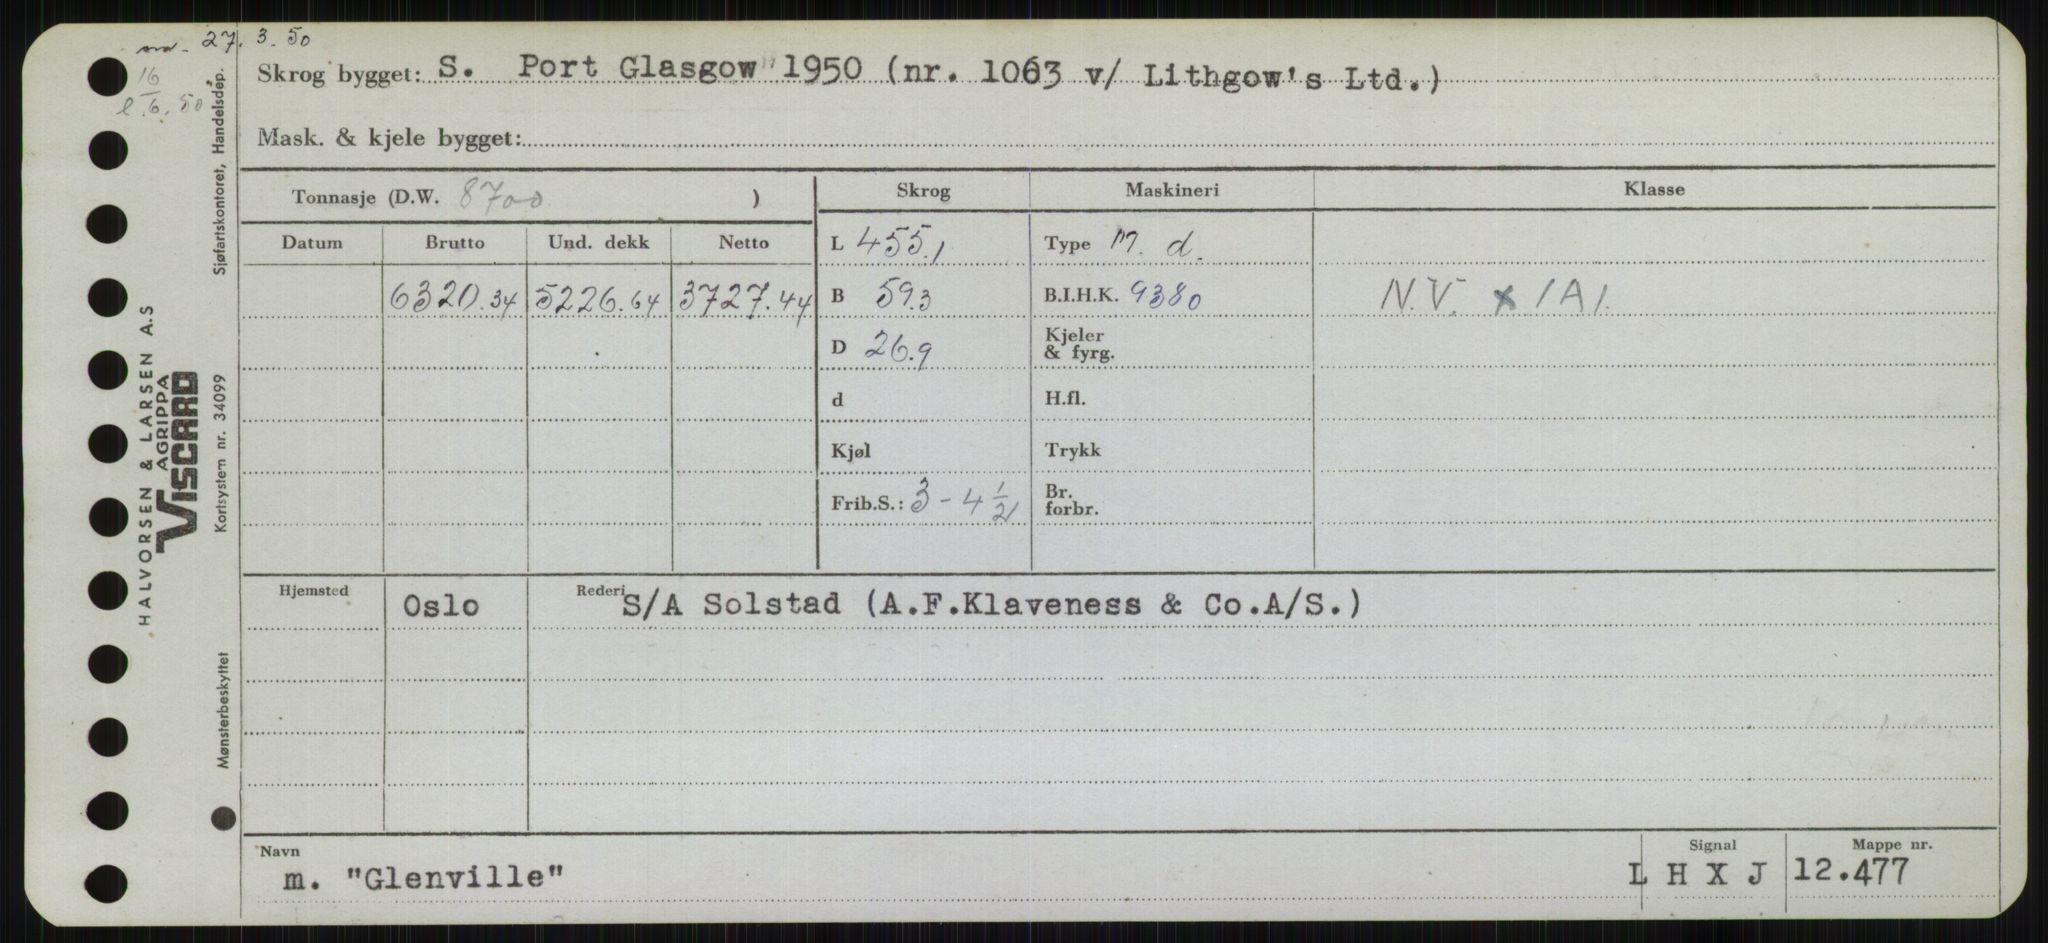 27. 3. 50
16
6. 50
Skrog bygget: S. Port Glasgow 1950 (nr. 1063 v/ Lithgow's Ltd.)
Mask. & kjele bygget:
Tonnasje (D.W. 8700 )
Skrog Maskineri Klasse
Datum Brutto Und. dekk Netto
L 455.1 Type M. d.
6320.34 5226.64 3727.44
B 59.3 B.I.H.K. 9380 N.V. x 1A1.
D 26.9 Kjeler
& fyrg.
d H.fl.
Kjøl Trykk
Frib.S.: 3 - 4 1/2 Br.
forbr.
Hjemsted Oslo Rederi S/A Solstad (A.F.Klaveness & Co.A/S.)
Navn Signal Mappe nr.
m. "Glenville" L H X J 12.477
HALVORSEN & LARSEN A.S
AGRIPPA
VISCARD
Mønsterbeskyttet Kortsystem nr. 34099 Sjøfartskontoret, Handelsdep.